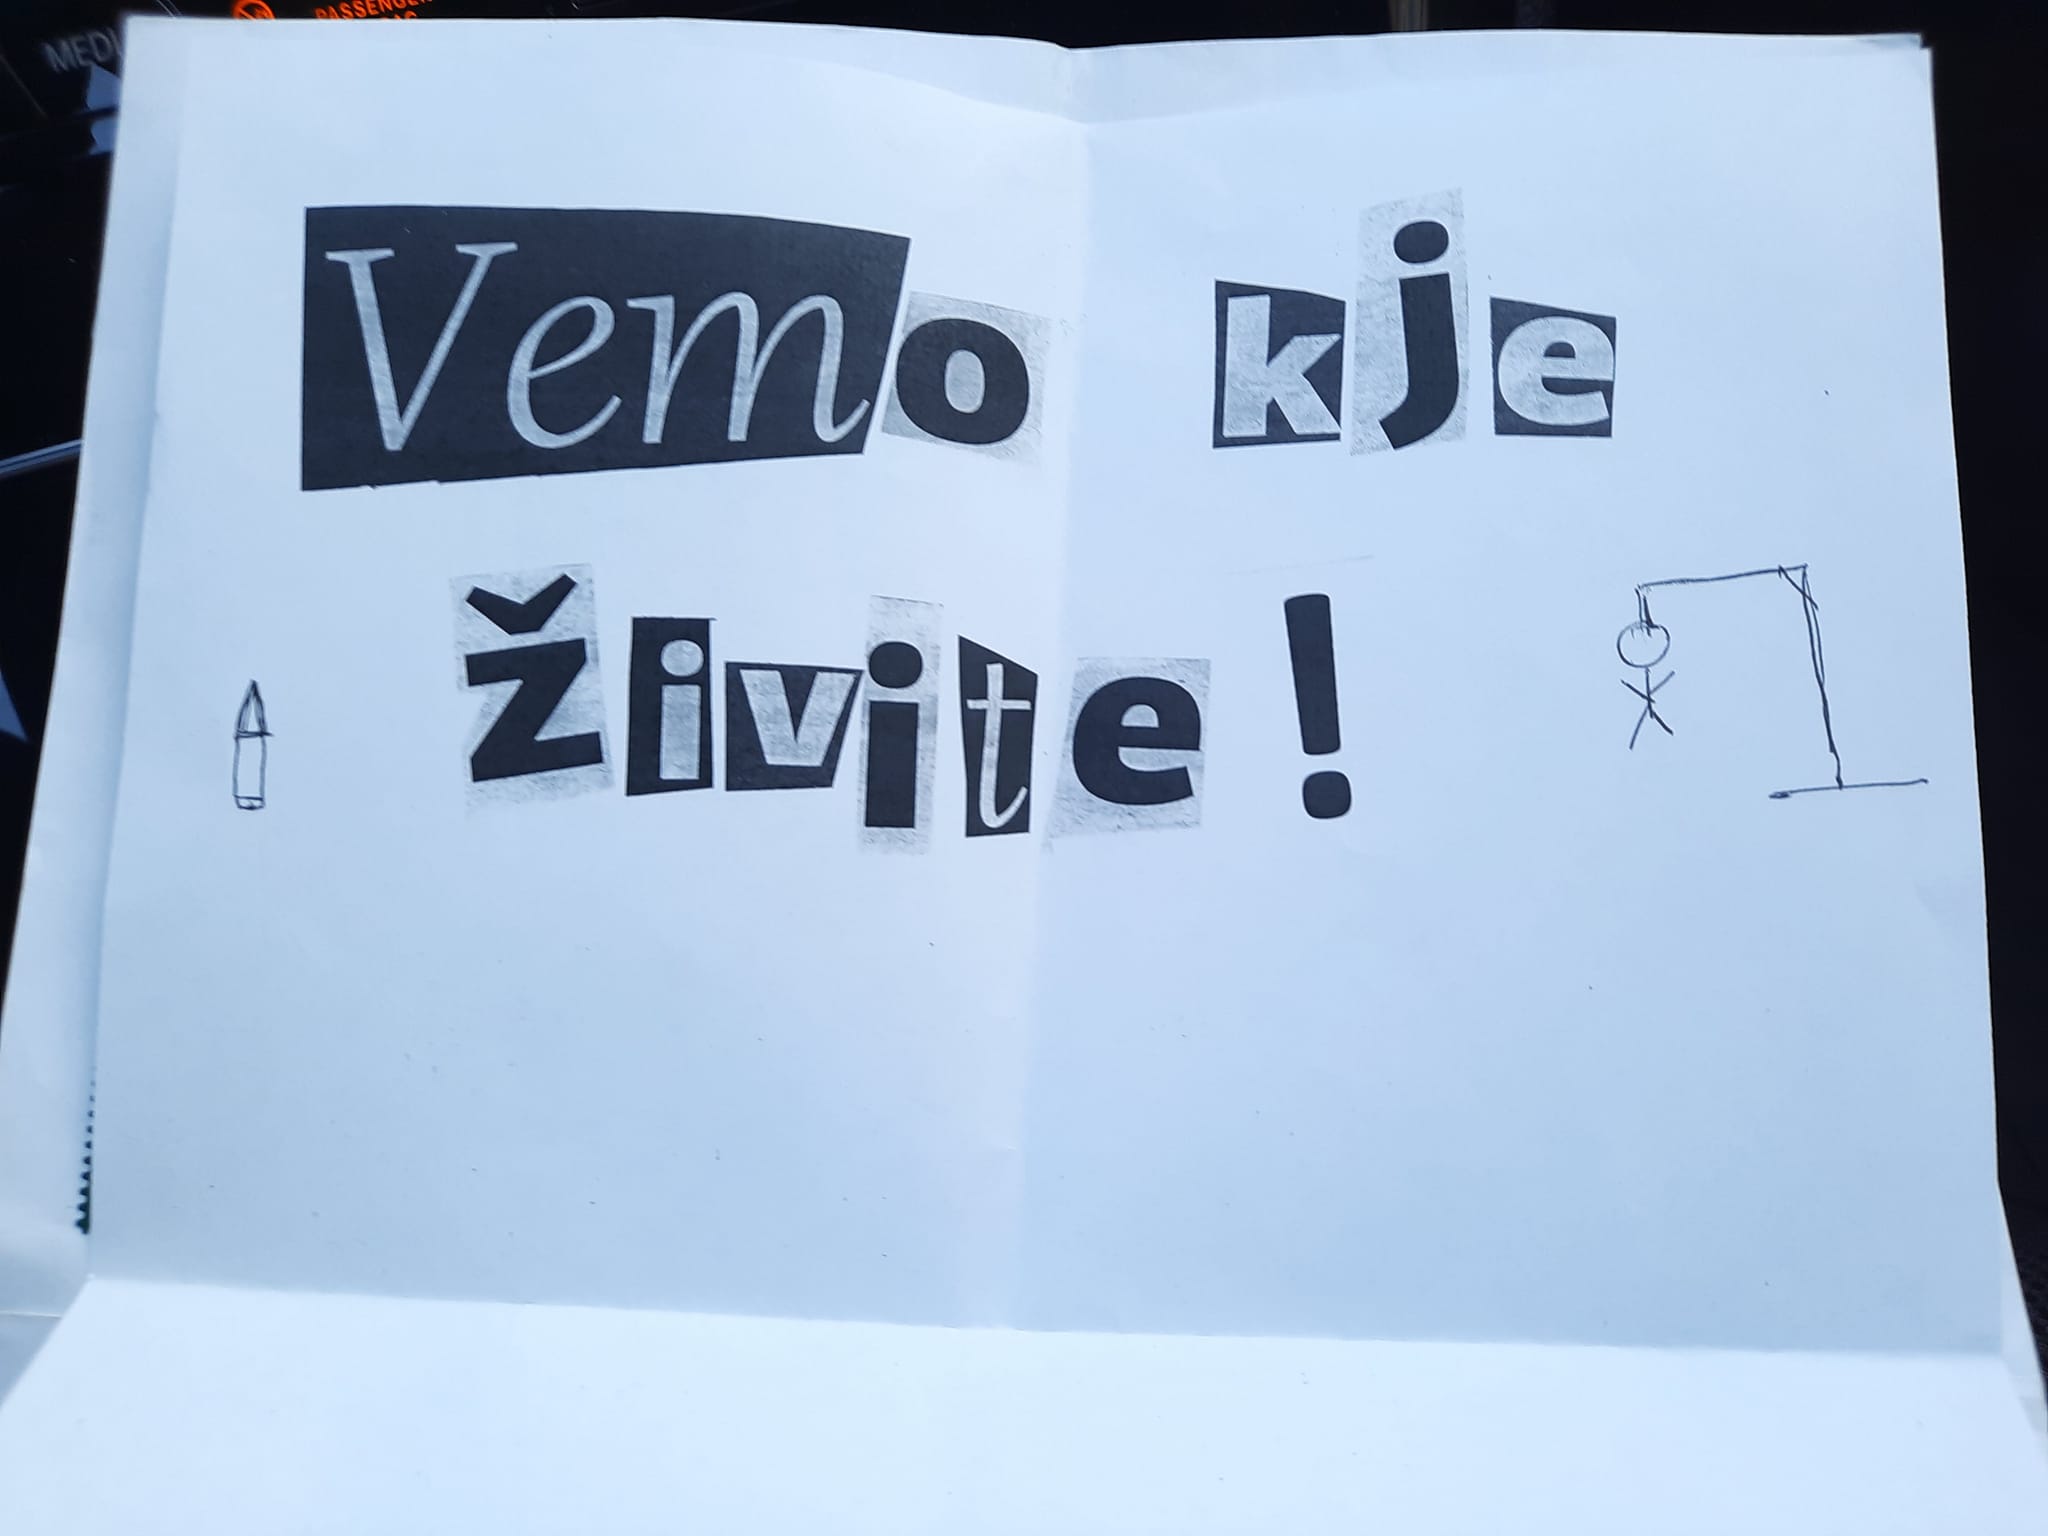 PASSENGER
MEDI
Vemo kje
živite!